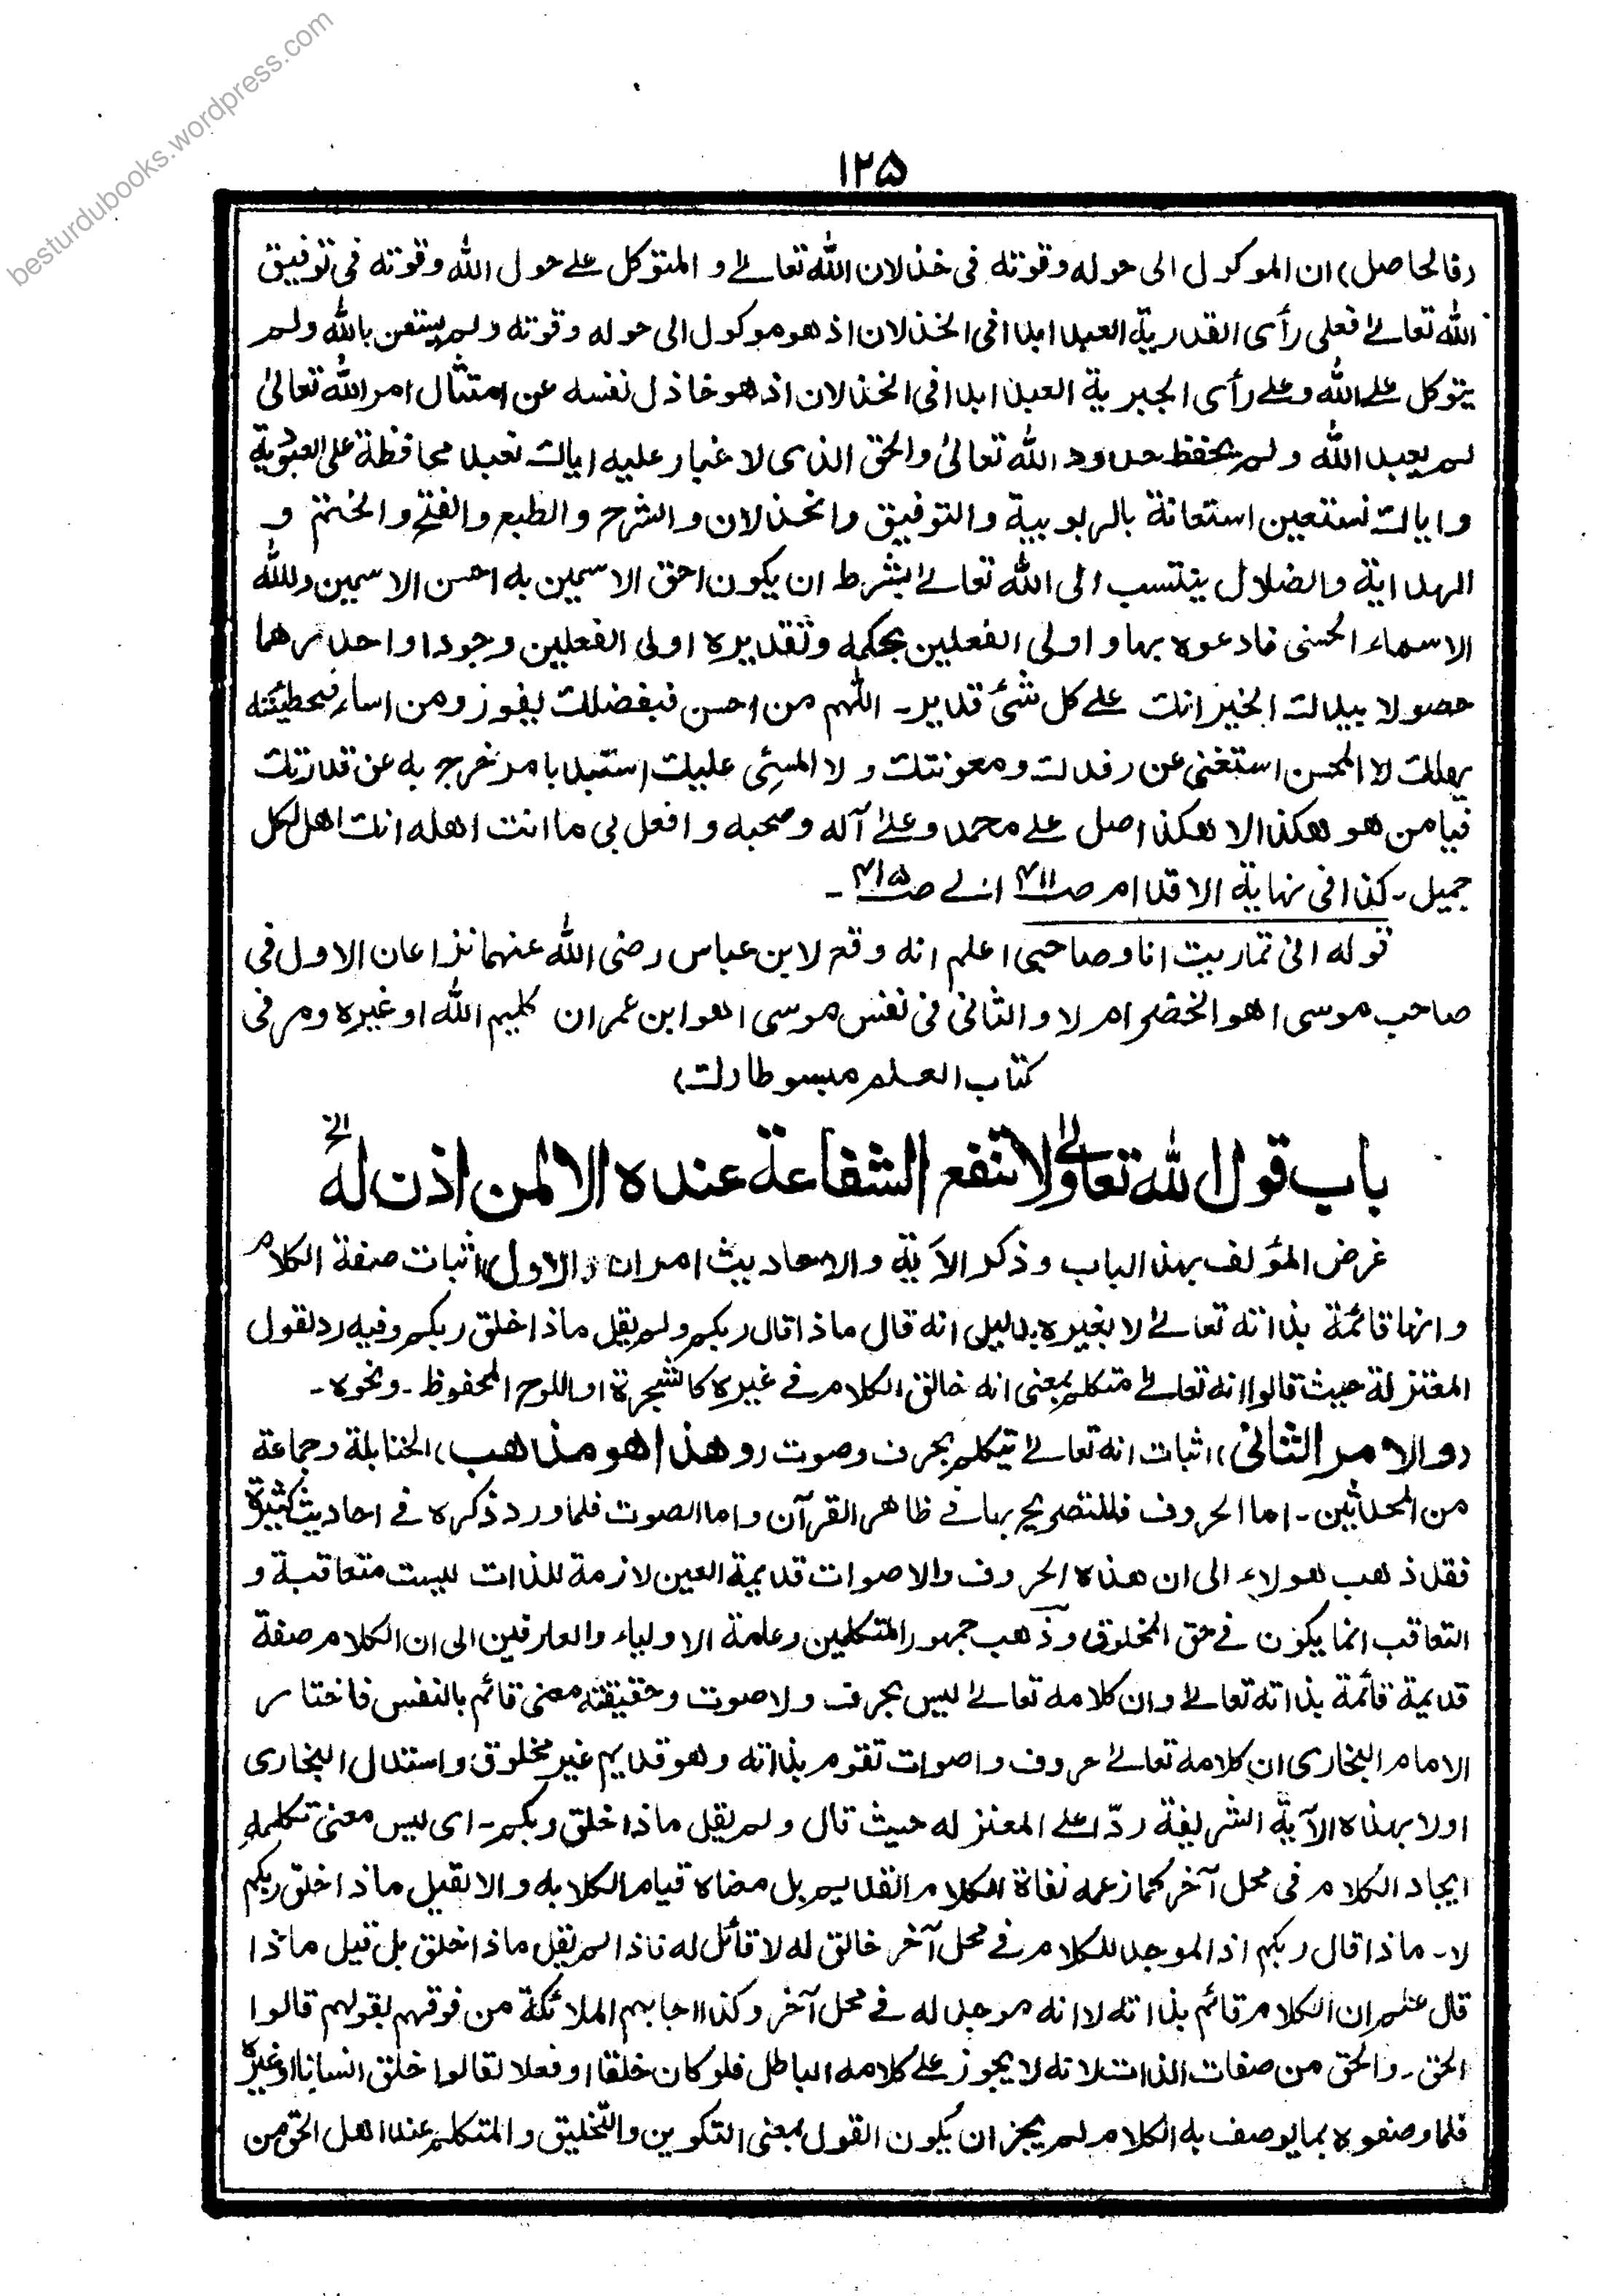 besturdubooks.wordpress.com
۱۲۵
(فالحاصل) ان الموكول الى حوله وقوته فى خذلان الله تعالے و المتوكل علے حول الله وقوته فى توفيق
الله تعالے فعلى رأى القدرية العبد ابدا فى الخذلان اذ هو موكول الى حوله وقوته ولم يستعن بالله ولم
يتوكل علے الله وعلے رأى الجبرية العبد ابدا فى الخذلان اذ هو خاذل نفسه عن امتثال امر الله تعالیٰ
لم يعبد الله ولم يحفظ حدود الله تعالیٰ والحق الذى لا غبار عليه اياك نعبد محافظة على العبودية
واياك نستعين استعانة بالربوبية والتوفيق والخذلان والشرح والطبع والفتح والختم و
الهداية والضلال ينتسب الى الله تعالے بشرط ان يكون احق الاسمين به احسن الاسمين ولله
الاسماء الحسنى فادعوه بها واولى الفعلين بحكمه وتقديره اولى الفعلين وجودا واحدرهما
حصولا بيدك الخير انك علے كل شئ قدير۔ اللهم من احسن فبفضلك يفوز ومن اساء فبخطيئته
يهلك لا المحسن استغنى عن رفدك ومعونتك ولا المسئى عليك استبد بامر خرج به عن قدرتك
فيا من هو هكذا لا هكذا صل علے محمد وعلےٰ آله وصحبه وافعل بى ما انت اهله انك اهل لكل
جميل۔ كذا فى نهاية الاقدام صـ۴۱۱ الے صـ۴۱۵۔
قوله انى تماريت انا وصاحبى اعلم انه وقع لابن عباس رضى الله عنهما نزاعان الاول فى
صاحب موسى اهو الخضر ام لا والثانى فى نفس موسى اهو ابن عمران كليم الله او غيره ومر فى
كتاب العلم مبسوطا (ك)
باب قول الله تعالیٰ ولا تنفع الشفاعة عنده الا لمن اذن له الخ
غرض المؤلف بهذا الباب وذكر الآية والاحاديث امران (الاول) اثبات صفة الكلام
وانها قائمة بذاته تعالے لا بغيره بدليل انه قال ماذا قال ربكم ولم يقل ماذا خلق ربكم وفيه رد لقول
المعتزلة حيث قالوا انه تعالے متكلم بمعنى انه خالق الكلام فے غيره كالشجرة او اللوح المحفوظ۔ ونحوه۔
(والامر الثانى) اثبات انه تعالے يتكلم بحرف وصوت (وهذا هو مذهب) الحنابلة وجماعة
من المحدثين۔ اما الحروف فللتصريح بها فے ظاهر القرآن واما الصوت فلما ورد ذكره فے احاديث كثيرة
فقد ذهب هولاء الى ان هذه الحروف والاصوات قديمة العين لازمة للذات ليست متعاقبة و
التعاقب انما يكون فے حق المخلوق وذهب جمهور المتكلمين وعامة الاولياء والعارفين الى ان الكلام صفة
قديمة قائمة بذاته تعالے وان كلامه تعالے ليس بحرف ولا صوت وحقيقته معنى قائم بالنفس فاختار
الامام البخارى ان كلامه تعالے حروف واصوات تقوم بذاته وهو قديم غير مخلوق واستدل البخارى
اولا بهذه الآية الشريفة ردّا علے المعتزله حيث قال ولم يقل ماذا خلق ربكم۔ اى ليس معنى تكلمه
ايجاد الكلام فى محل آخر كما زعمه نفاة الكلام القديم بل معناه قيام الكلا به والا لقيل ماذا خلق ربكم
لا۔ ماذا قال ربكم اذ الموجد للكلام فے محل آخر خالق له لا قائل له فاذا لم يقل ماذا خلق بل قيل ماذا
قال علم ان الكلام قائم بذاته لا انه موجد له فے محل آخر وكذا اجابهم الملائكة من فوقهم بقولهم قالوا
الحق۔ والحق من صفات الذات لانه لا يجوز علے كلامه الباطل فلو كان خلقا او فعلا لقالوا خلق انسانا او غيره
فلما وصفوه بما يوصف به الكلام لم يجز ان يكون القول بمعنى التكوين والتخليق والمتكلم عند اهل الحق من